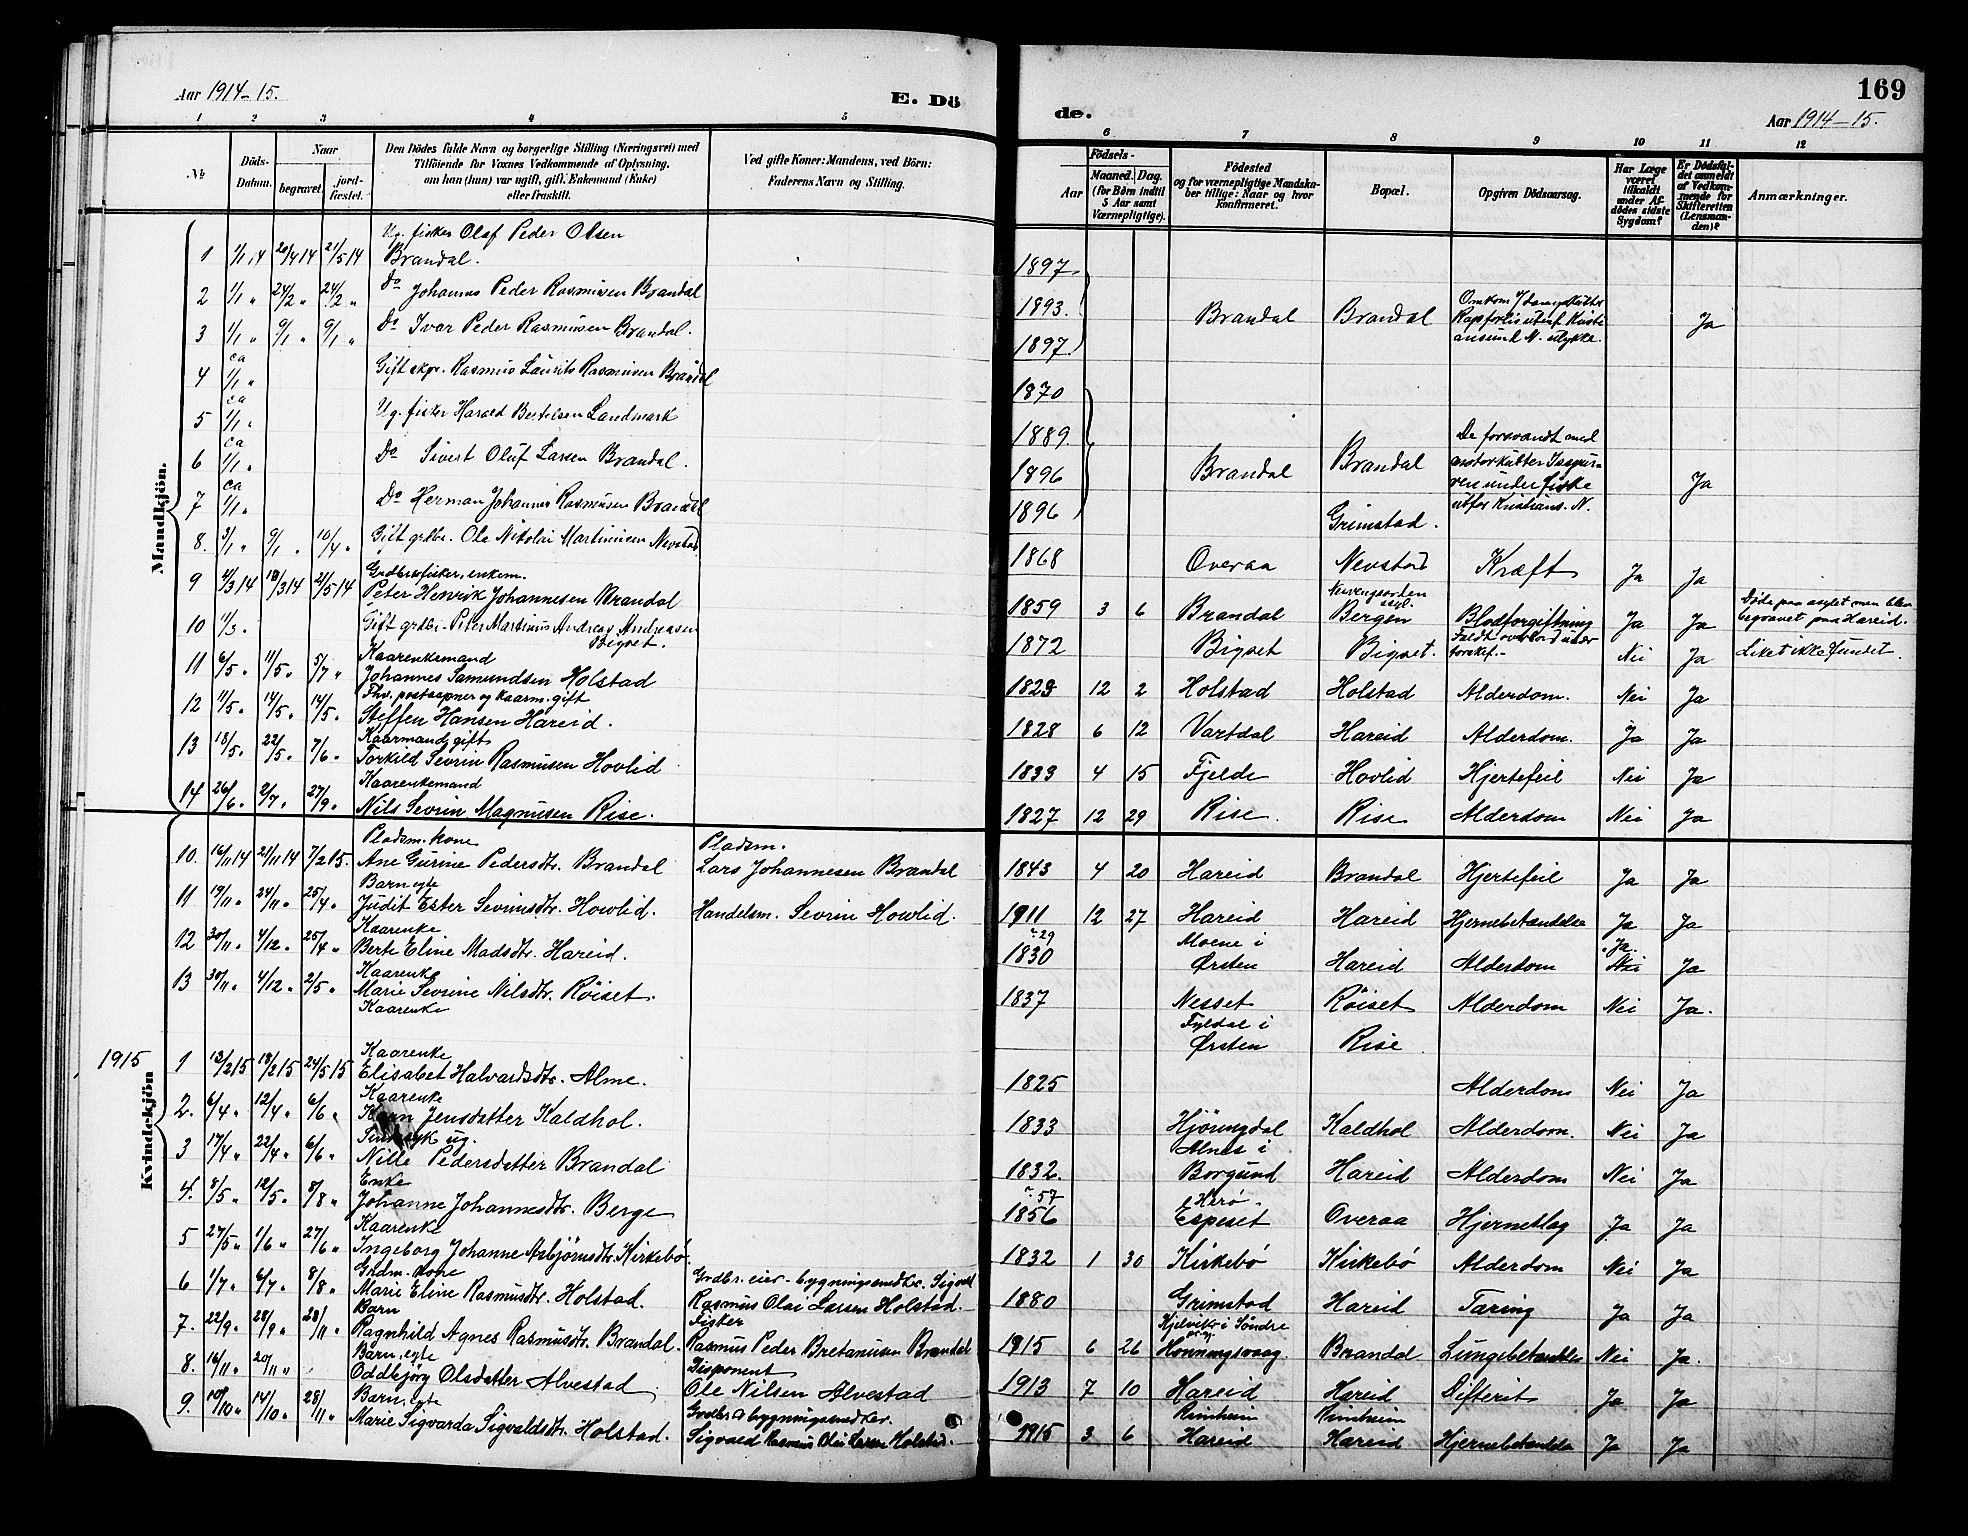 Aar 1914-15.
E. Dö
de.
169
Aar 1914-15.
1 2 3 4 5 6 7 8 9 10 11 12
№
Döds-Datum.
Naar
begravet
jord-fæstet.
Den Dödes fulde Navn og borgerlige Stilling (Næringsvei) med
Tilföiende for Voxnes Vedkommende af Oplysning,
om han (hun) var ugift, gift, Enkemand (Enke)
eller fraskilt.
Ved gifte Koner: Mandens, ved Börn:
Faderens Navn og Stilling.
Födsels-
Aar
Maaned. Dag.
(for Börn indtil
5 Aar samt
Værnepligtige).
Födested
og for værnepligtige Mandska-
ber tillige: Naar og hvor
konfirmeret.
Bopæl.
Opgiven Dödsaarsag.
Har Læge
været
tilkaldt
under Af-
dödes sidste
Sygdom?
Er Dödsfal-
det anmeldt
af Vedkom-
mende for
Skifteretten
(Lensman-
den)?
Anmærkninger.
Mandkjön.
Ug. fisker Olaf Peder Olsen
1 1/1 14 20/4 14 21/5 14 Brandal. 1897
2 1/1 " 24/2 " 24/2 " Do Johannes Peder Rasmusen Brandal 1893. Brandal Brandal
3 1/1 " 9/1 " 9/1 " Do Ivar Peder Rasmusen Brandal. 1897. Ja
4 ca 1/1 " Gift skpr. Rasmus Laurits Rasmusen Brandal 1870
5 ca 1/1 " Ug. fisker Harald Bertelsen Landmark 1889.
De forsvandt med
6 ca 1/1 " Do Sivert Oluf Larsen Brandal. 1896 Brandal Brandal motorkutter
ven under fiske Ja
7 ca 1/1 " Do Herman Johannes Rasmusen Brandal 1896 Grimstad. utfor Kristians. N.
8. 3/1 " 9/1 " 10/4 " Gift grdbr. Ole Nikolai Martinusen Nevstad 1868 Overaa Nevstad Kræft Ja Ja
Grdbr. fisker, enkem.
9 4/3 14 18/3 14 21/5 14 Peter Henrik Johannesen Brandal 1859 3 6 Brandal Bergen Blodforgiftning Ja Ja
Döde paa asylet men blev
begravet paa Hareid.
10 11/3 " Gift grdbr. Peter Martinus Andreas Andreasen
Bigset. 1872 Bigset Bigset. Faldt overbord under
torskef. Nei Ja Liket ikke fundet.
Kaarenkemand
11 6/5 " 11/5 " 5/7 " Johannes Samundsen Holstad 1829 12 2 Holstad Holstad Alderdom. Nei Ja
Fhv. postaapner og kaarm. gift
12 11/5 " 14/5 " 14/5 " Steffen Hansen Hareid. 1828 6 12 Vartdal Hareid Alderdom. Ja Ja
Kaarmand, gift
13 18/5 " 22/5 " 7/6 " Torkild Sevrin Rasmusen Hovlid 1833 4 15 Fjelde Hovlid Hjertefeil Nei Ja
Kaarenkemand
14 26/6 " 2/7 " 27/9 " Nils Sevrin Magnusen Rise. 1827 12 29 Rise. Rise Alderdom Nei Ja
Kvindekjön
Pladsm. kone Pladsm.
10. 16/11 14 21/11 14 7/2 15. Ane Gurine Pedersdtr. Brandal Lars Johannesen Brandal 1843 4 20 Hareid Brandal Hjertefeil Ja Ja
Barn egte
11 19/11 " 24/11 " 25/4 " Judit Ester Sevrinsdtr. Howlid. Handelsm. Sevrin Howlid. 1911 12 27 Hareid Hareid Hjernebetændelse Ja Ja
Kaarenke 29 Moene i Ja
12 30/11 " 4/12 " 25/4 " Berte Eline Madsdtr. Hareid. 1830 Ørsten Hareid Alderdom Nei Ja
Kaarenke
13 30/11 " 4/12 " 2/5 " Marie Sevrine Nilsdtr. Röiset. 1837 Nesset Röiset Alderdom Nei Ja.
Kaarenke
1915
Kaarenke Ørsten Rise
1 13/2 15 18/2 15 24/5 15 Elisabet Halvardsdtr. Alme. 1825 Alderdom Nei Ja
Kaarenke
2. 6/4 " 12/4 " 6/6 " Jensdatter Kaldhol. 1833 Hjörungdal Kaldhol Alderdom. Nei Ja
ug. Alnes i
3 17/4 " 22/4 " 6/6 " Nille Pedersdatter Brandal 1832. Borgund Hareid Alderdom Nei Ja
Enke 57 Herö
4. 8/5 " 12/5 " 8/8 " Johanne Johannesdtr. Berge 1856 Espeset Overaa Hjerneslag Ja Ja
Kaarenke
5 27/5 " 1/6 " 27/6 " Ingeborg Johanne Asbjörnsdtr. Kirkebö. 1832 1 30 Kirkebö Kirkebö Alderdom Nei Ja
Grdm. kone Grdbr. eier - bygningssnedker. Sigvald
6 1/7 " 6/7 " 8/8 " Marie Eline Rasmusdtr. Holstad. Rasmus Olai Larsen Holstad. 1880 Grimstad Hareid Tæring Ja Ja
Barn Fisker Kjelvik i Söndre
7. 22/9 " 28/9 " 28/11 " Ragnhild Agnes Rasmusdtr. Brandal. Rasmus Peder Bretanusen Brandal 1915 6 26 Honningsvaag. Brandal Lungebetændelse Nei Ja.
Barn, egte Disponent
8. 16/11 " 20/11 " Oddbjörg Olsdatter Alvestad Ole Nilsen Alvestad 1913 7 10 Hareid Hareid Difterit Ja Ja
Barn, egte Grdbr. & bygningssnedker. Rimheim Rimheim
9. 10/10 " 14/10 " 28/11 " Marie Sigvarda Sigvaldsdtr. Holstad. Sigvald Rasmus Olai Larsen Holstad. 1915 3 6 Hareid Hareid Hjernebetændelse Ja Ja